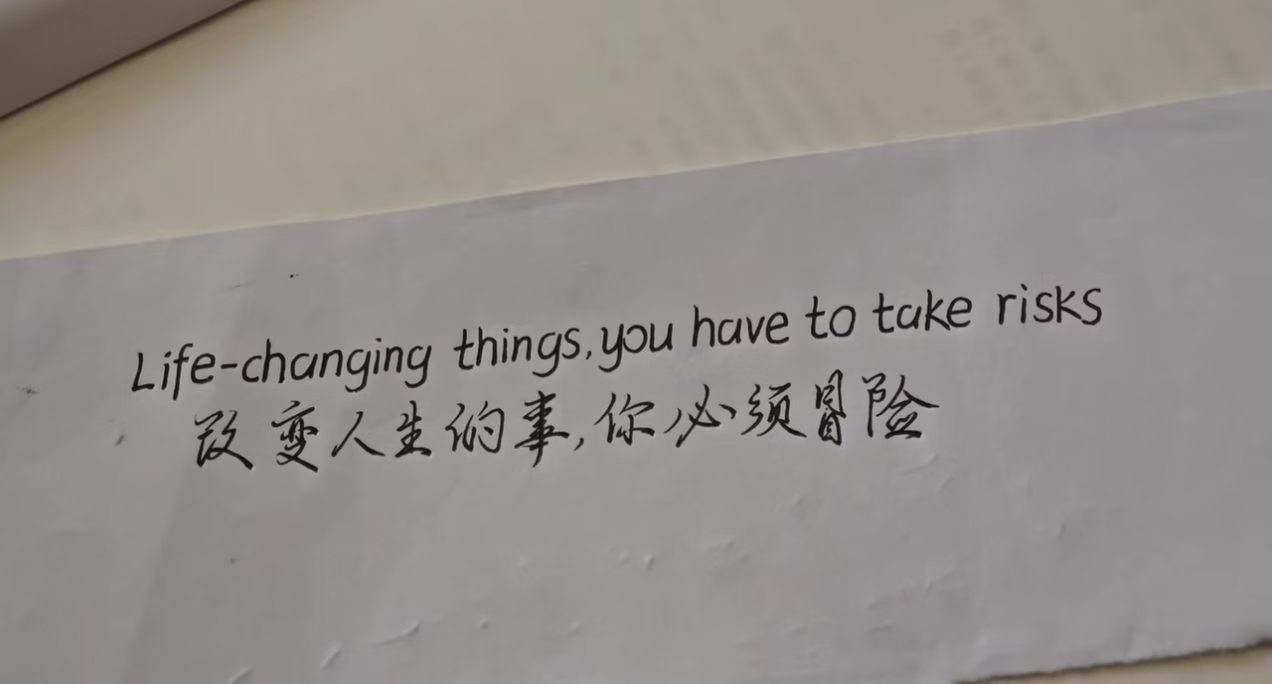 Life-changing things, you have to take risks
改变人生的事,你必须冒险